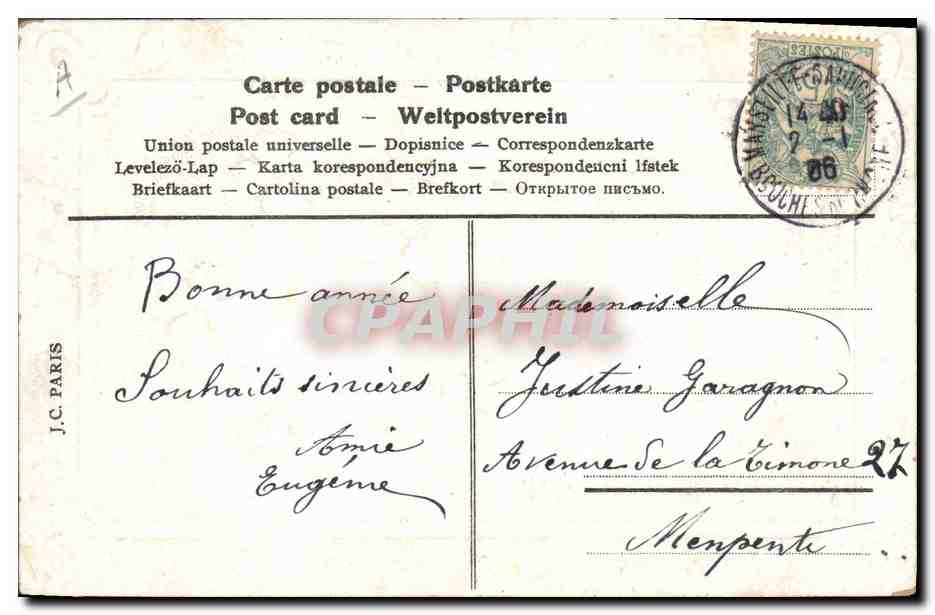 A
Carte postale – Postkarte
Post card – Weltpostverein
Union postale universelle – Dopisnice – Correspondenzkarte
Levelezö-Lap – Karta korespondencyjna – Korespondencni lfstek
Briefkaart – Cartolina postale – Brefkort – Открытое письмо.
POSTES
MARSEILLE
14
2 - 1
06
BOUCHES DU RHONE
J.C. PARIS
Bonne année
Souhaits sincères
Amie
Eugénie
CPAPHIL
Mademoiselle
Justine Garagnon
Avenue de la Timone 27
Menpenti